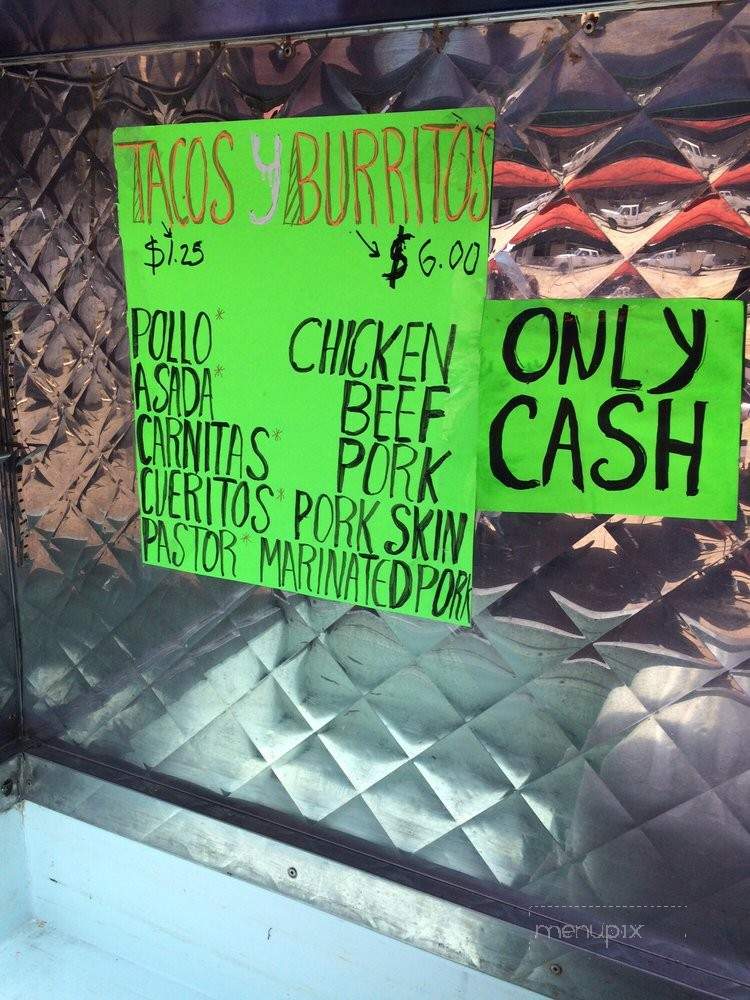 TACOS Y BURRITOS
$1.25 $6.00
POLLO* CHICKEN
ASADA* BEEF
CARNITAS* PORK
CUERITOS* PORK SKIN
PASTOR* MARINATED PORK
ONLY
CASH
menupix